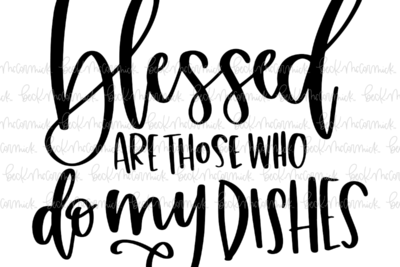 blessed
ARE THOSE WHO
do my DISHES